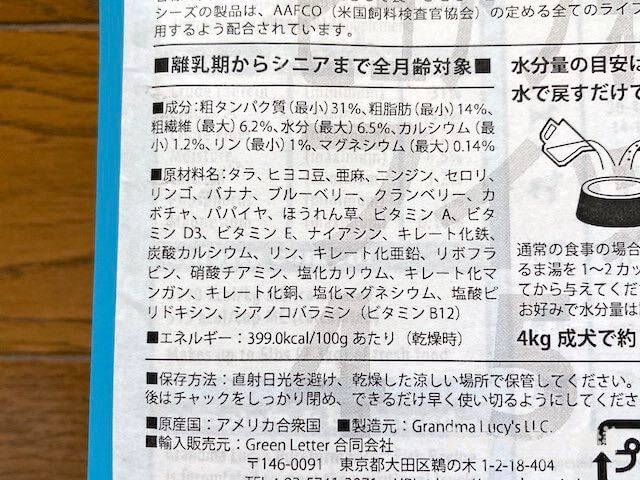 シーズの製品は、AAFCO（米国飼料検査官協会）の定める全てのライフ
用するよう配合されています。
■離乳期からシニアまで全月齢対象■
■成分：粗タンパク質（最小）31%、粗脂肪（最小）14%、
粗繊維（最大）6.2%、水分（最大）6.5%、カルシウム（最
小）1.2%、リン（最小）1%、マグネシウム（最大）0.14%
■原材料名：タラ、ヒヨコ豆、亜麻、ニンジン、セロリ、
リンゴ、バナナ、ブルーベリー、クランベリー、カ
ボチャ、パパイヤ、ほうれん草、ビタミン A、ビタ
ミン D3、ビタミン E、ナイアシン、キレート化鉄、
炭酸カルシウム、リン、キレート化亜鉛、リボフラ
ビン、硝酸チアミン、塩化カリウム、キレート化マ
ンガン、キレート化銅、塩化マグネシウム、塩酸ピ
リドキシン、シアノコバラミン（ビタミン B12）
■エネルギー：399.0kcal/100g あたり（乾燥時）
■保存方法：直射日光を避け、乾燥した涼しい場所で保管してください。
後はチャックをしっかり閉め、できるだけ早く使い切るようにしてくださ
■原産国：アメリカ合衆国　■製造元：Grandma Lucy's LLC.
■輸入販売元：Green Letter 合同会社
〒146-0091　東京都大田区鵜の木 1-2-18-404
水分量の目安は
水で戻すだけで
通常の食事の場合
るま湯を 1〜2 カッ
てから与えてくだ
お好みで水分量は
4kg 成犬で約